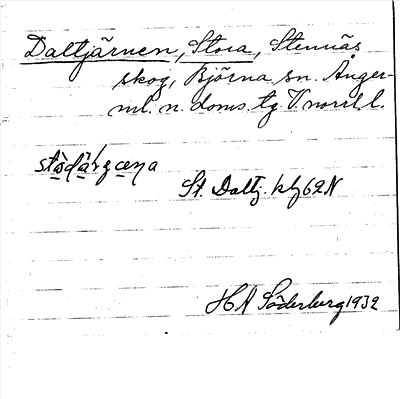 Daltjärnen, Stora, Stennäs
skog, Björna sn. Ånger-
ml. n. doms. tg. V. norrl. l.
St. Daltj. kbl 62 N
H A Söderberg 1932